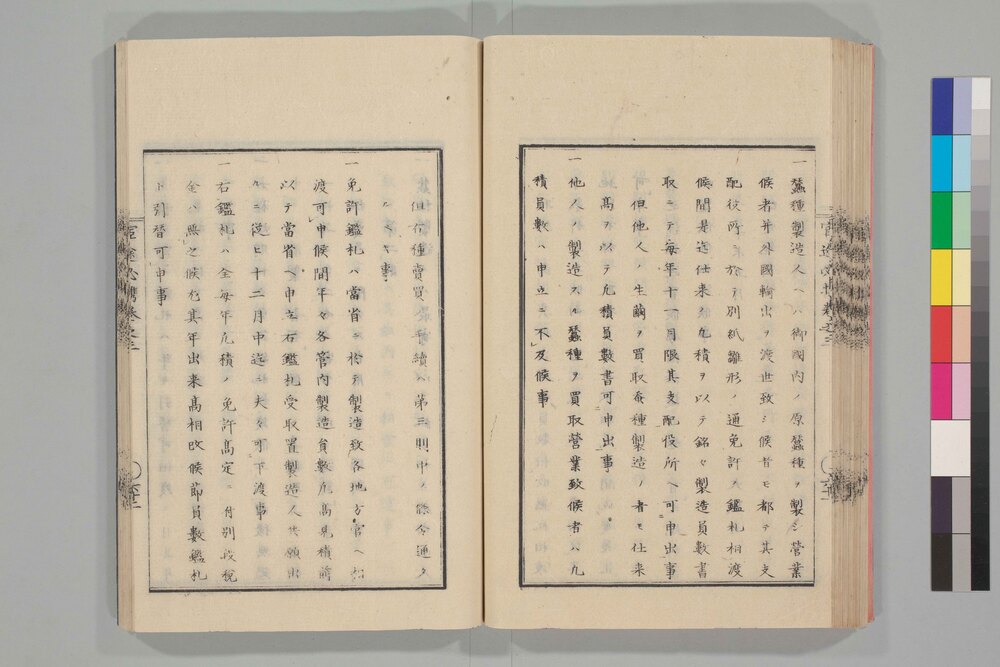 一蠶種製造人ヘハ御國内ノ原蠶種ヲ製シ營業
候者并外國輸出ヲ渡世致シ候者モ都テ其支
配役所ニ於テ別紙雛形ノ通免許鑑札相渡
候間是迄仕来ノ凡積ヲ以テ銘々製造員數書
取ニテ毎年十一月限其支配役所ヘ可申出事
但他人ノ生繭ヲ買取蚕種製造ノ者モ仕来
高ヲ以テ凡積員數書可申出事
一他人ノ製造スル蠶種ヲ買取營業致候者ハ凡
積員數ハ申立ニ不及候事
但信種賣買ノ手續ハ第三則中ノ條令通タ
ルヘキ事
一免許鑑札ハ當省ニ於テ製造致各地方官ヘ相
渡可申候間年々各管内製造員數凡高見積前
以テ當省ヘ申立右鑑札受取置製造人共願出
ルニ従ヒ十二月中迄ニ夫々可下渡事
一右鑑札ハ全毎年凡積ノ免許高定ニ付別段税
金ハ無之候尤其年出来高相改候節員數鑑札
ト引替可申事